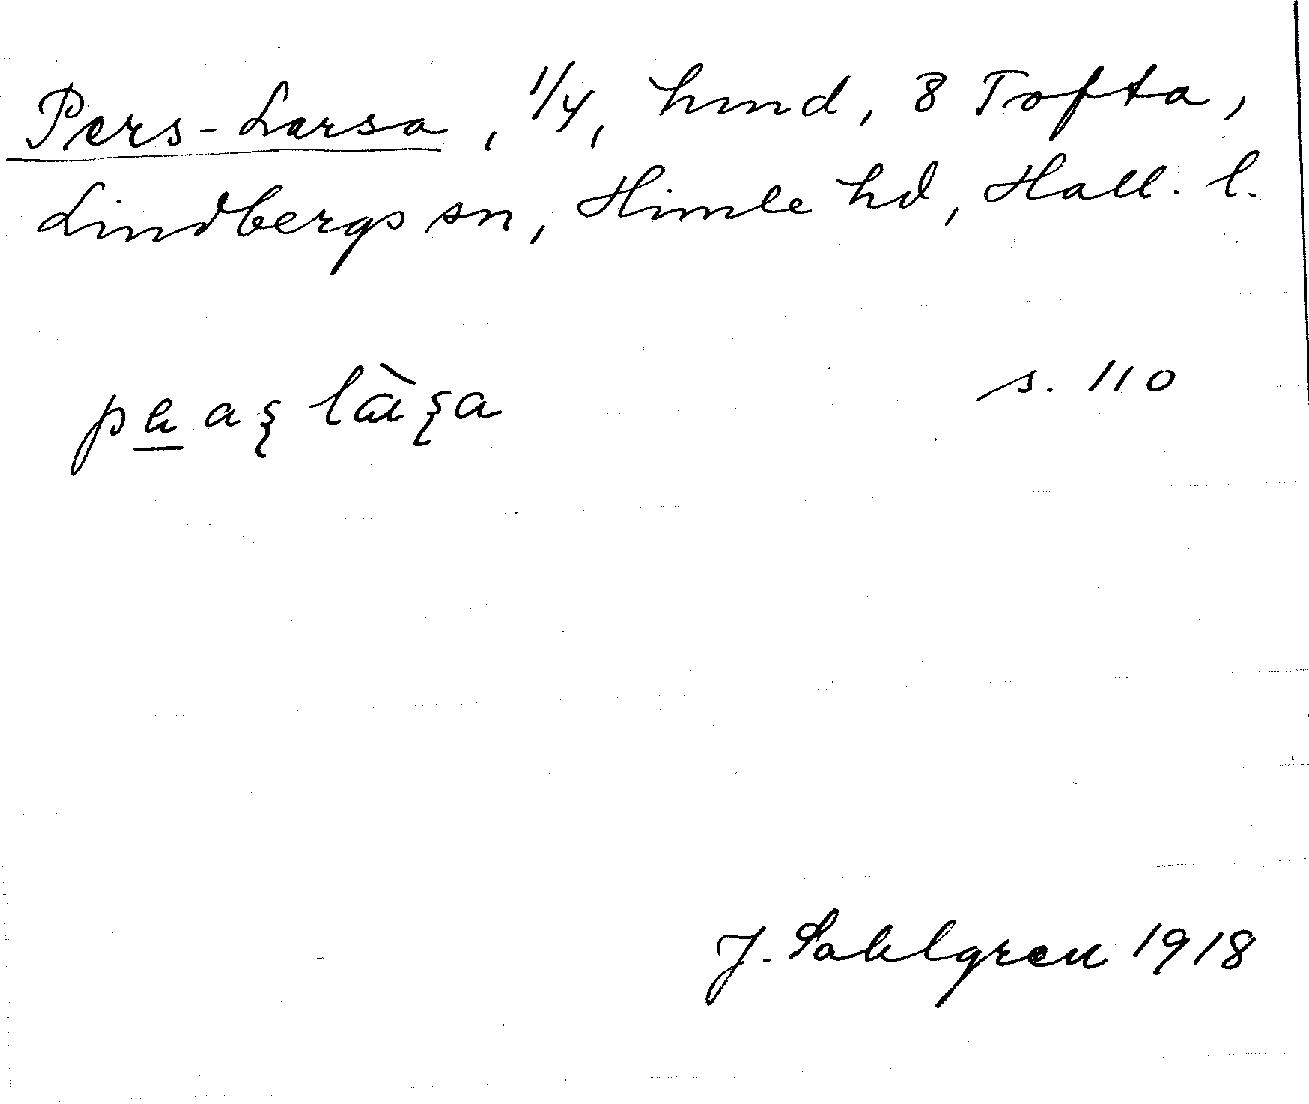 Pers-Larsa, 1/4, hmd, 8 Tofta,
Lindbergs sn, Himle hd, Hall. l.
pa̲aʂ làʂa s. 110
J. Sahlgren 1918